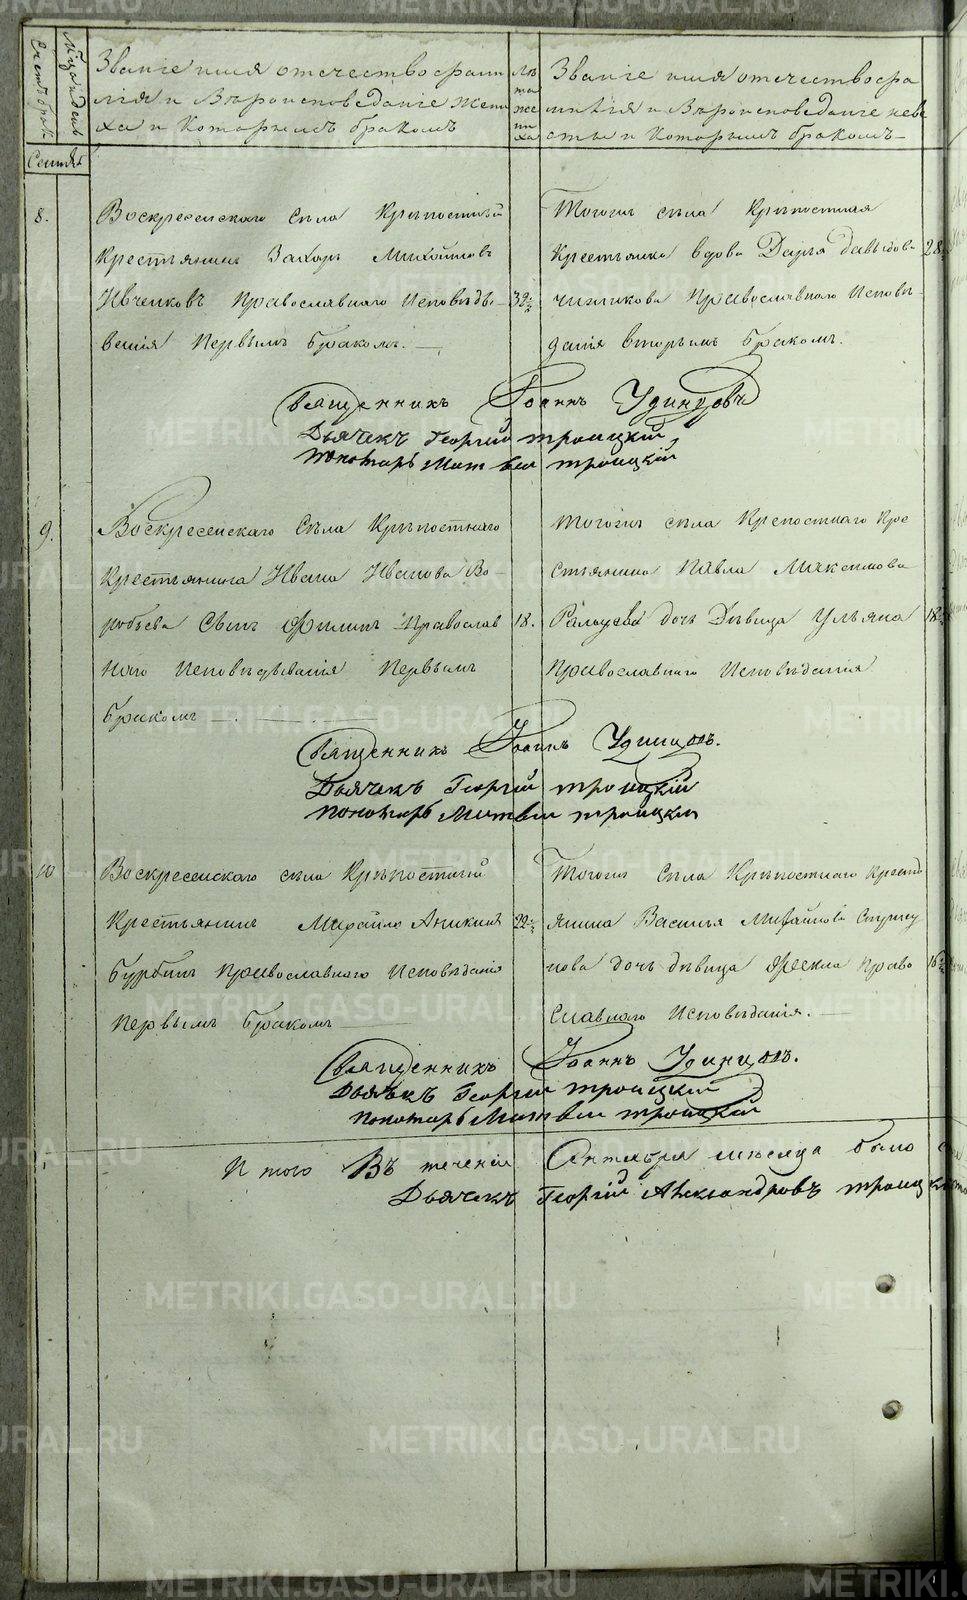 Счетъ браковъ
Мѣсяцъ и день
Званіе имя отечество фами
лія и Вѣроисповеданіе жени
ха и которымъ бракомъ
Лѣ
та
же
ни
ха
Званіе имя отечество фа
милія и Вѣроисповеданіе неве
сты и которымъ бракомъ
Сентябр
8.
Воскресенскаго Села Крѣпостный
Крестьянинъ Захаръ Михайловъ
Ивченковъ Православнаго Исповѣды
ванія Первымъ бракомъ.
32
Тогожъ села Крѣпостная
Крестьянка вдова Дарья Давыдов
Православнаго Исповѣ
данія вторымъ бракомъ.
28
Священникъ Іоаннъ Удинцовъ
Дьячекъ Георгій Троицкій,
Пономарь Матвѣи Троицкій
9.
Воскресенскаго Села Крѣпостнаго
Крестьянина Ивана Иванова Во
робьева Сынъ Филипъ Православ
наго Исповѣдыванія Первымъ
бракомъ
18.
Тогожъ села Крепостнаго Кре
стьянина Павла Максимова
дочь Дѣвица Ульяна
Православнаго Исповѣданія
18
Священникъ Іоаннъ Удинцовъ.
Дьячекъ Георгій Троицкій
Пономарь Матвѣи Троицкіи
10
Воскресенскаго села Крѣпостный
Крестьянинъ Михайло Аникинъ
Бурбинъ Православнаго Исповѣданія
Первымъ бракомъ
22
Тогожъ Села Крѣпостнаго Крестья
янина Василья Михайлова
нова дочь дѣвица Фекла Право
Славнаго Исповѣданія.
16
Священникъ Іоаннъ Удинцовъ.
Дьячекъ Георгіи Троицкіи
Пономарь Матвѣи Троицкій
И того Въ теченіи Сентября месяца было
Дьячекъ Георгій Александровъ Троицкій
METRIKI.GASO-URAL.RU